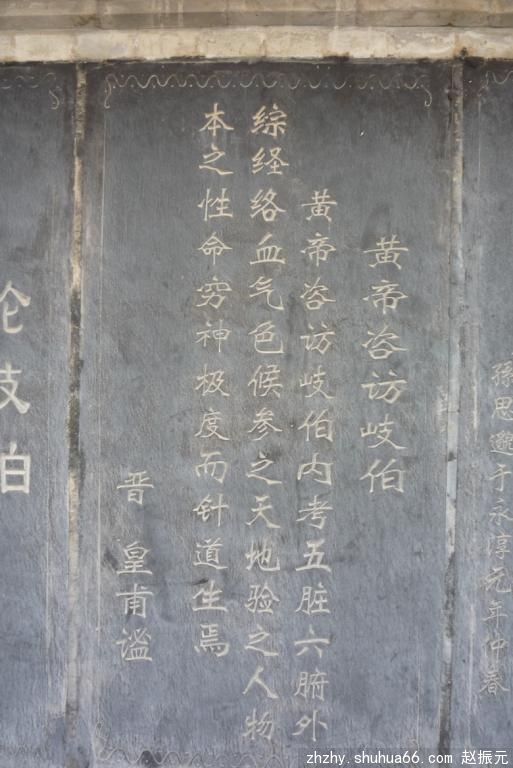 孫思邈于永淳元年仲春
黄帝咨访岐伯
黄帝咨访岐伯内考五脏六腑外
综经络血气色候参之天地验之人物
本之性命穷神极度而针道生焉
晋 皇甫谧
论岐伯
zhzhy.shuhua66.com 赵振元